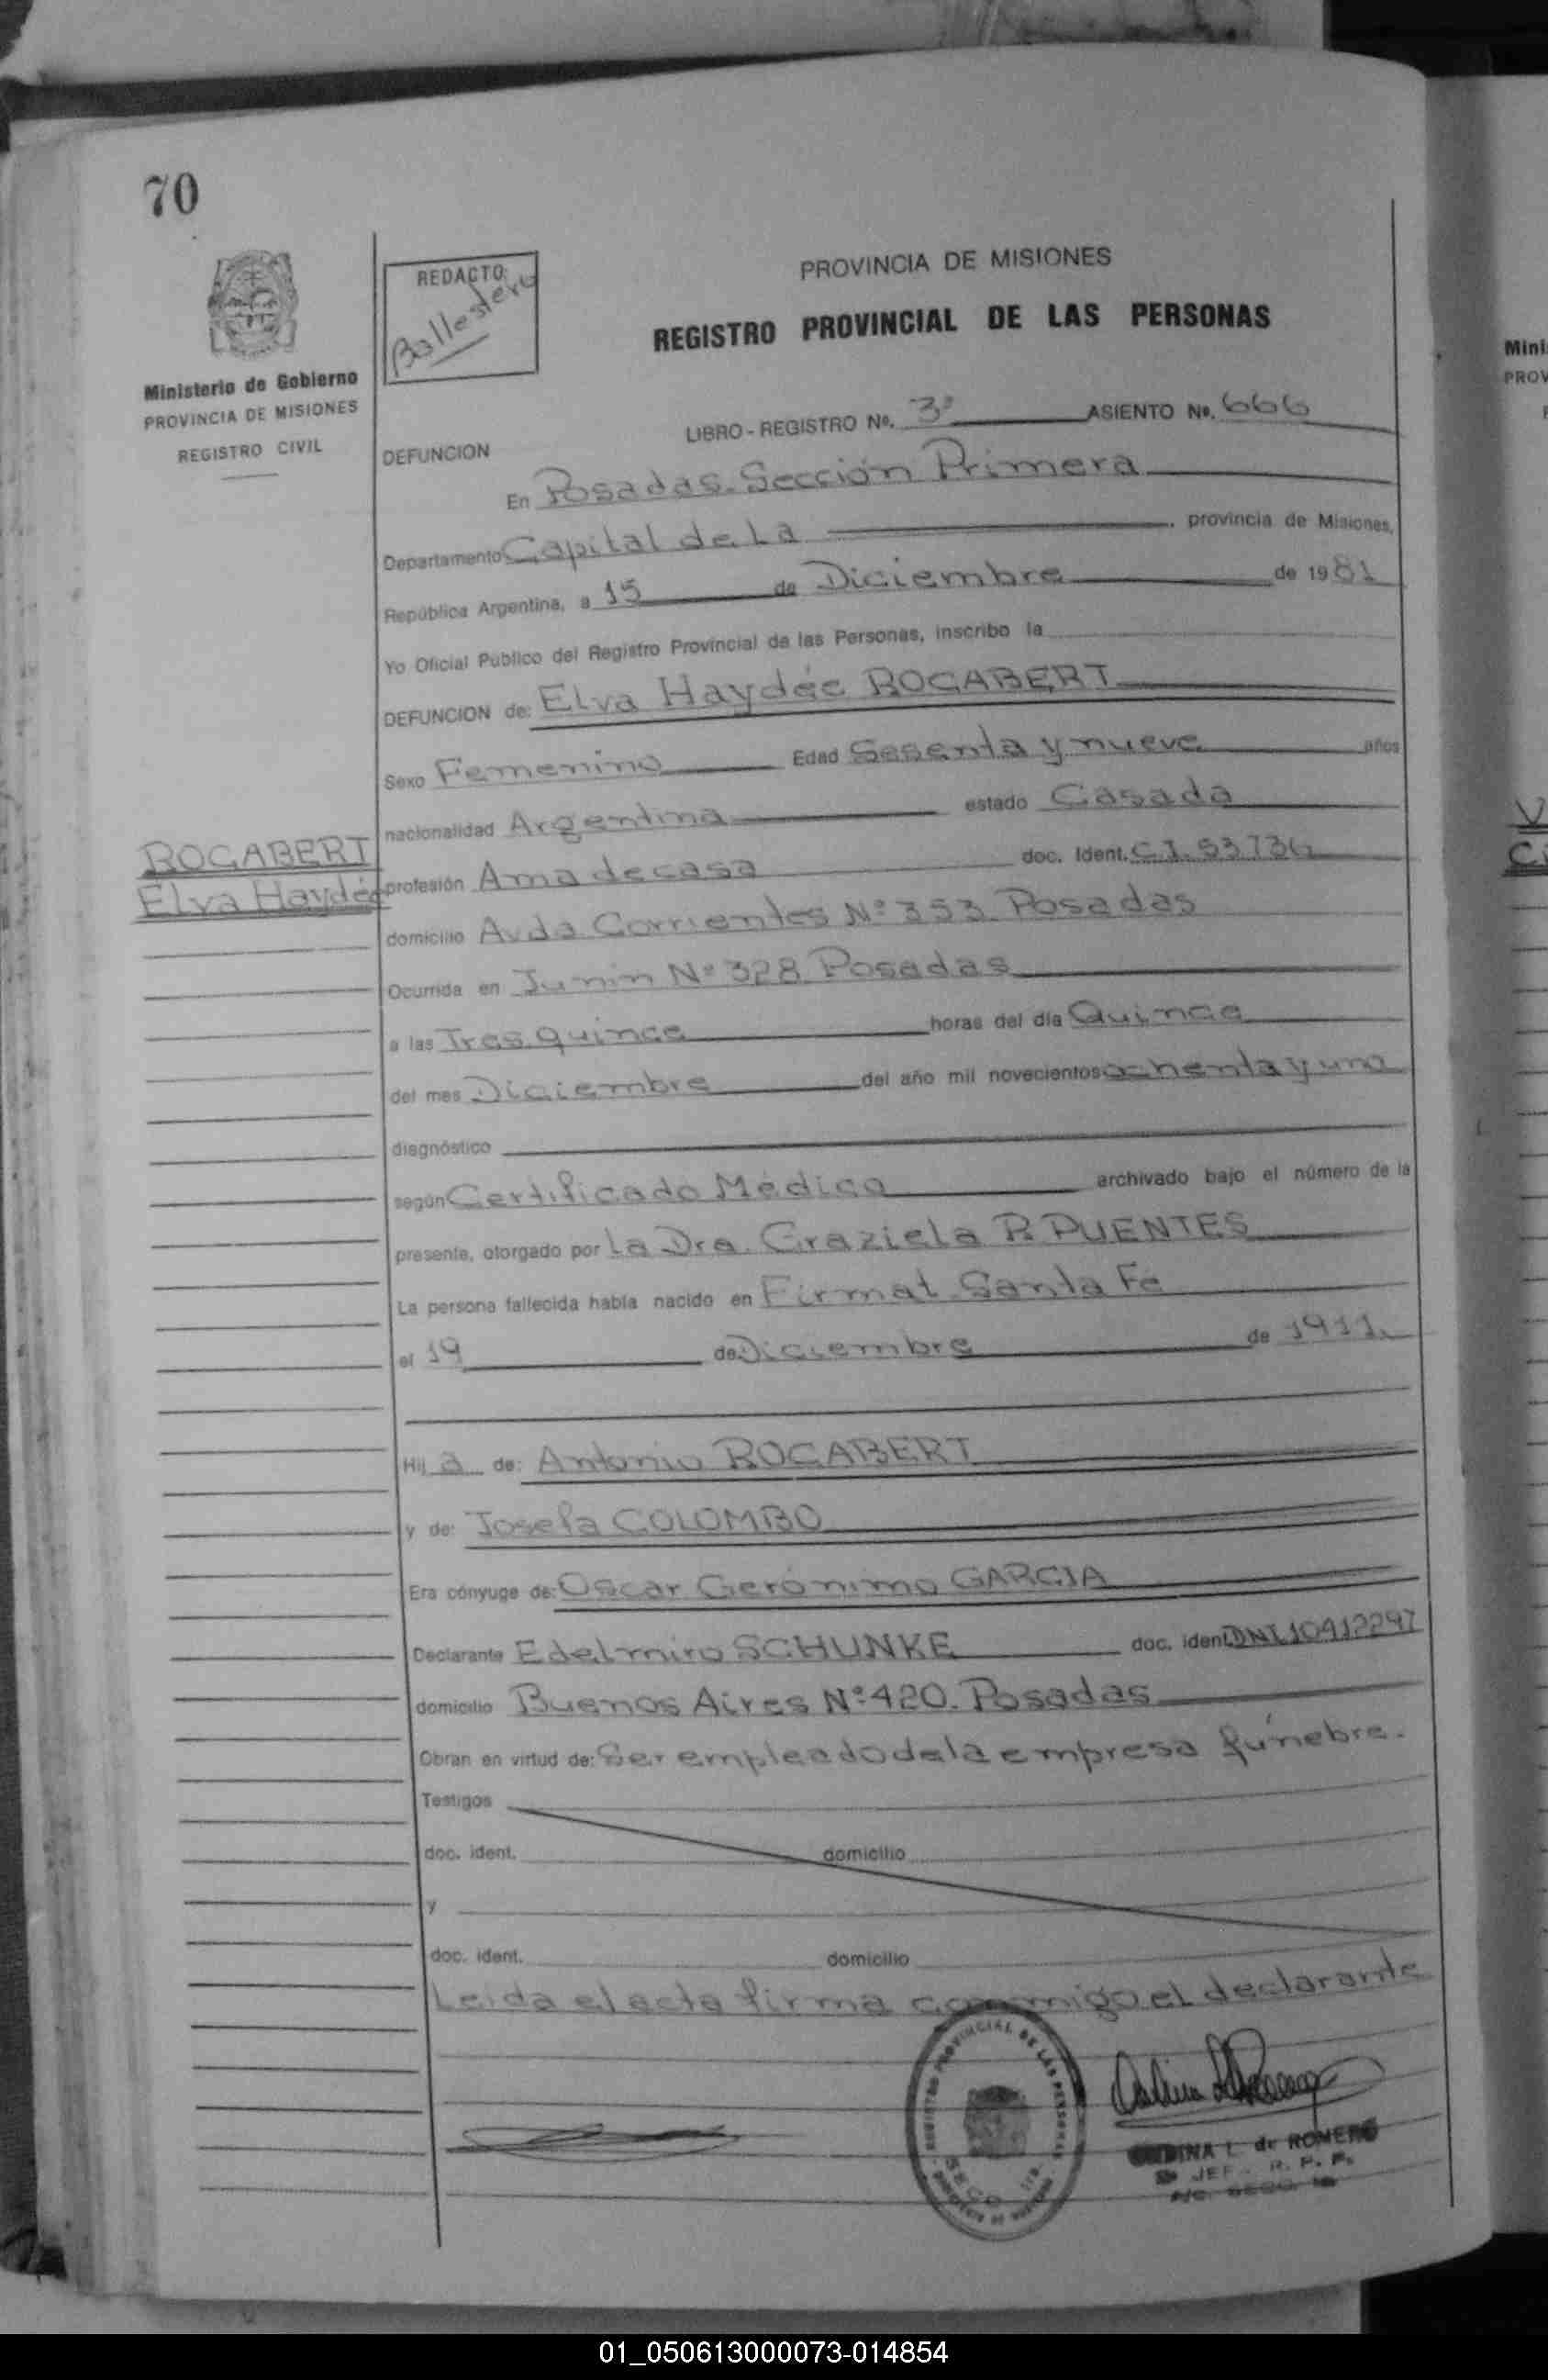 70
REDACTO:
Ballestero
PROVINCIA DE MISIONES
REGISTRO PROVINCIAL DE LAS PERSONAS
Ministerio de Gobierno
PROVINCIA DE MISIONES
REGISTRO CIVIL
LIBRO - REGISTRO Nº. 3º ASIENTO Nº. 666
DEFUNCION
En Posadas. Sección Primera
Departamento Capital de La , provincia de Misiones,
República Argentina, a 15 de Diciembre de 1981
Yo Oficial Público del Registro Provincial de las Personas, inscribo la
DEFUNCION de: Elva Haydée ROGABERT
Sexo Femenino Edad Sesenta y nueve años
nacionalidad Argentina estado Casada
ROGABERT
Elva Haydée
profesión Ama de casa doc. Ident. C.I. 53736
domicilio Avda Corrientes Nº 353. Posadas
Ocurrida en Junin Nº 328 Posadas
a las Tres quince horas del día Quince
del mes Diciembre del año mil novecientos ochenta y uno
diagnóstico
según Certificado Médico archivado bajo el número de la
presente, otorgado por la Dra. Graziela P. PUENTES
La persona fallecida había nacido en Firmat Santa Fé
el 19 de Diciembre de 1911.
Hij a de: Antonio ROGABERT
y de: Josefa COLOMBO
Era cónyuge de: Oscar Gerónimo GARCIA
Declarante Edelmiro SCHUNKE doc. ident. DNI 10412297
domicilio Buenos Aires Nº 420. Posadas
Obran en virtud de: Ser empleado de la empresa fúnebre.
Testigos
doc. ident. domicilio
y
doc. ident. domicilio
Leida el acta firma conmigo el declarante
REGISTRO PROVINCIAL DE LAS PERSONAS
L. de ROMERO
JEF R. P. P.
Mini
PROV
V
Ci
01_050613000073-014854